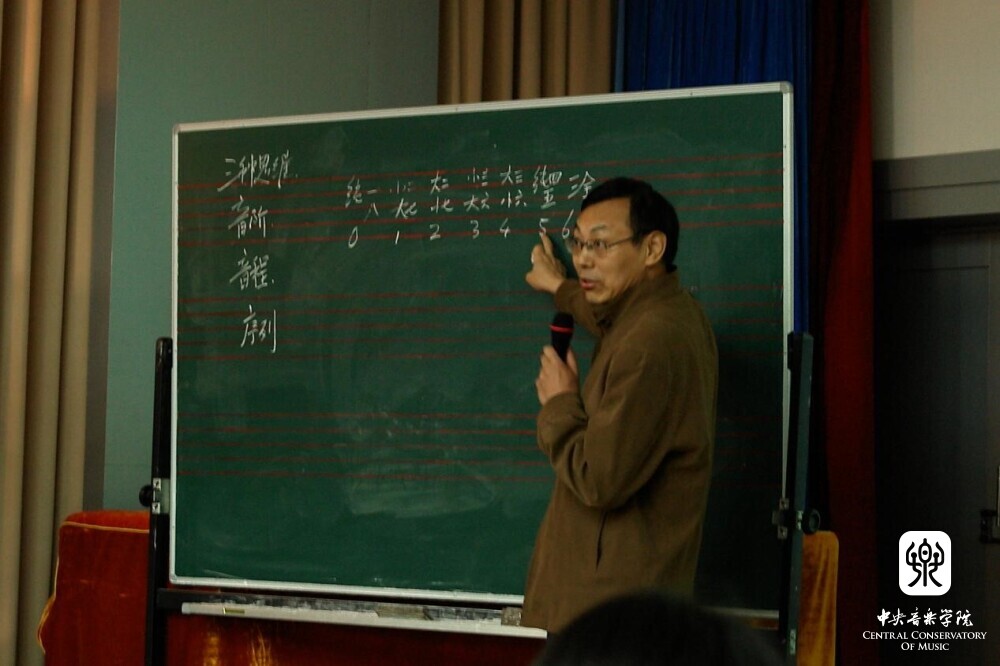 三种思维.
音阶.
音程.
序列
纯一 小二 大二 小三 大三 纯四 三全
八 大七 小七 大六 小六 五
0 1 2 3 4 5 6
中央音乐学院
CENTRAL CONSERVATORY
OF MUSIC